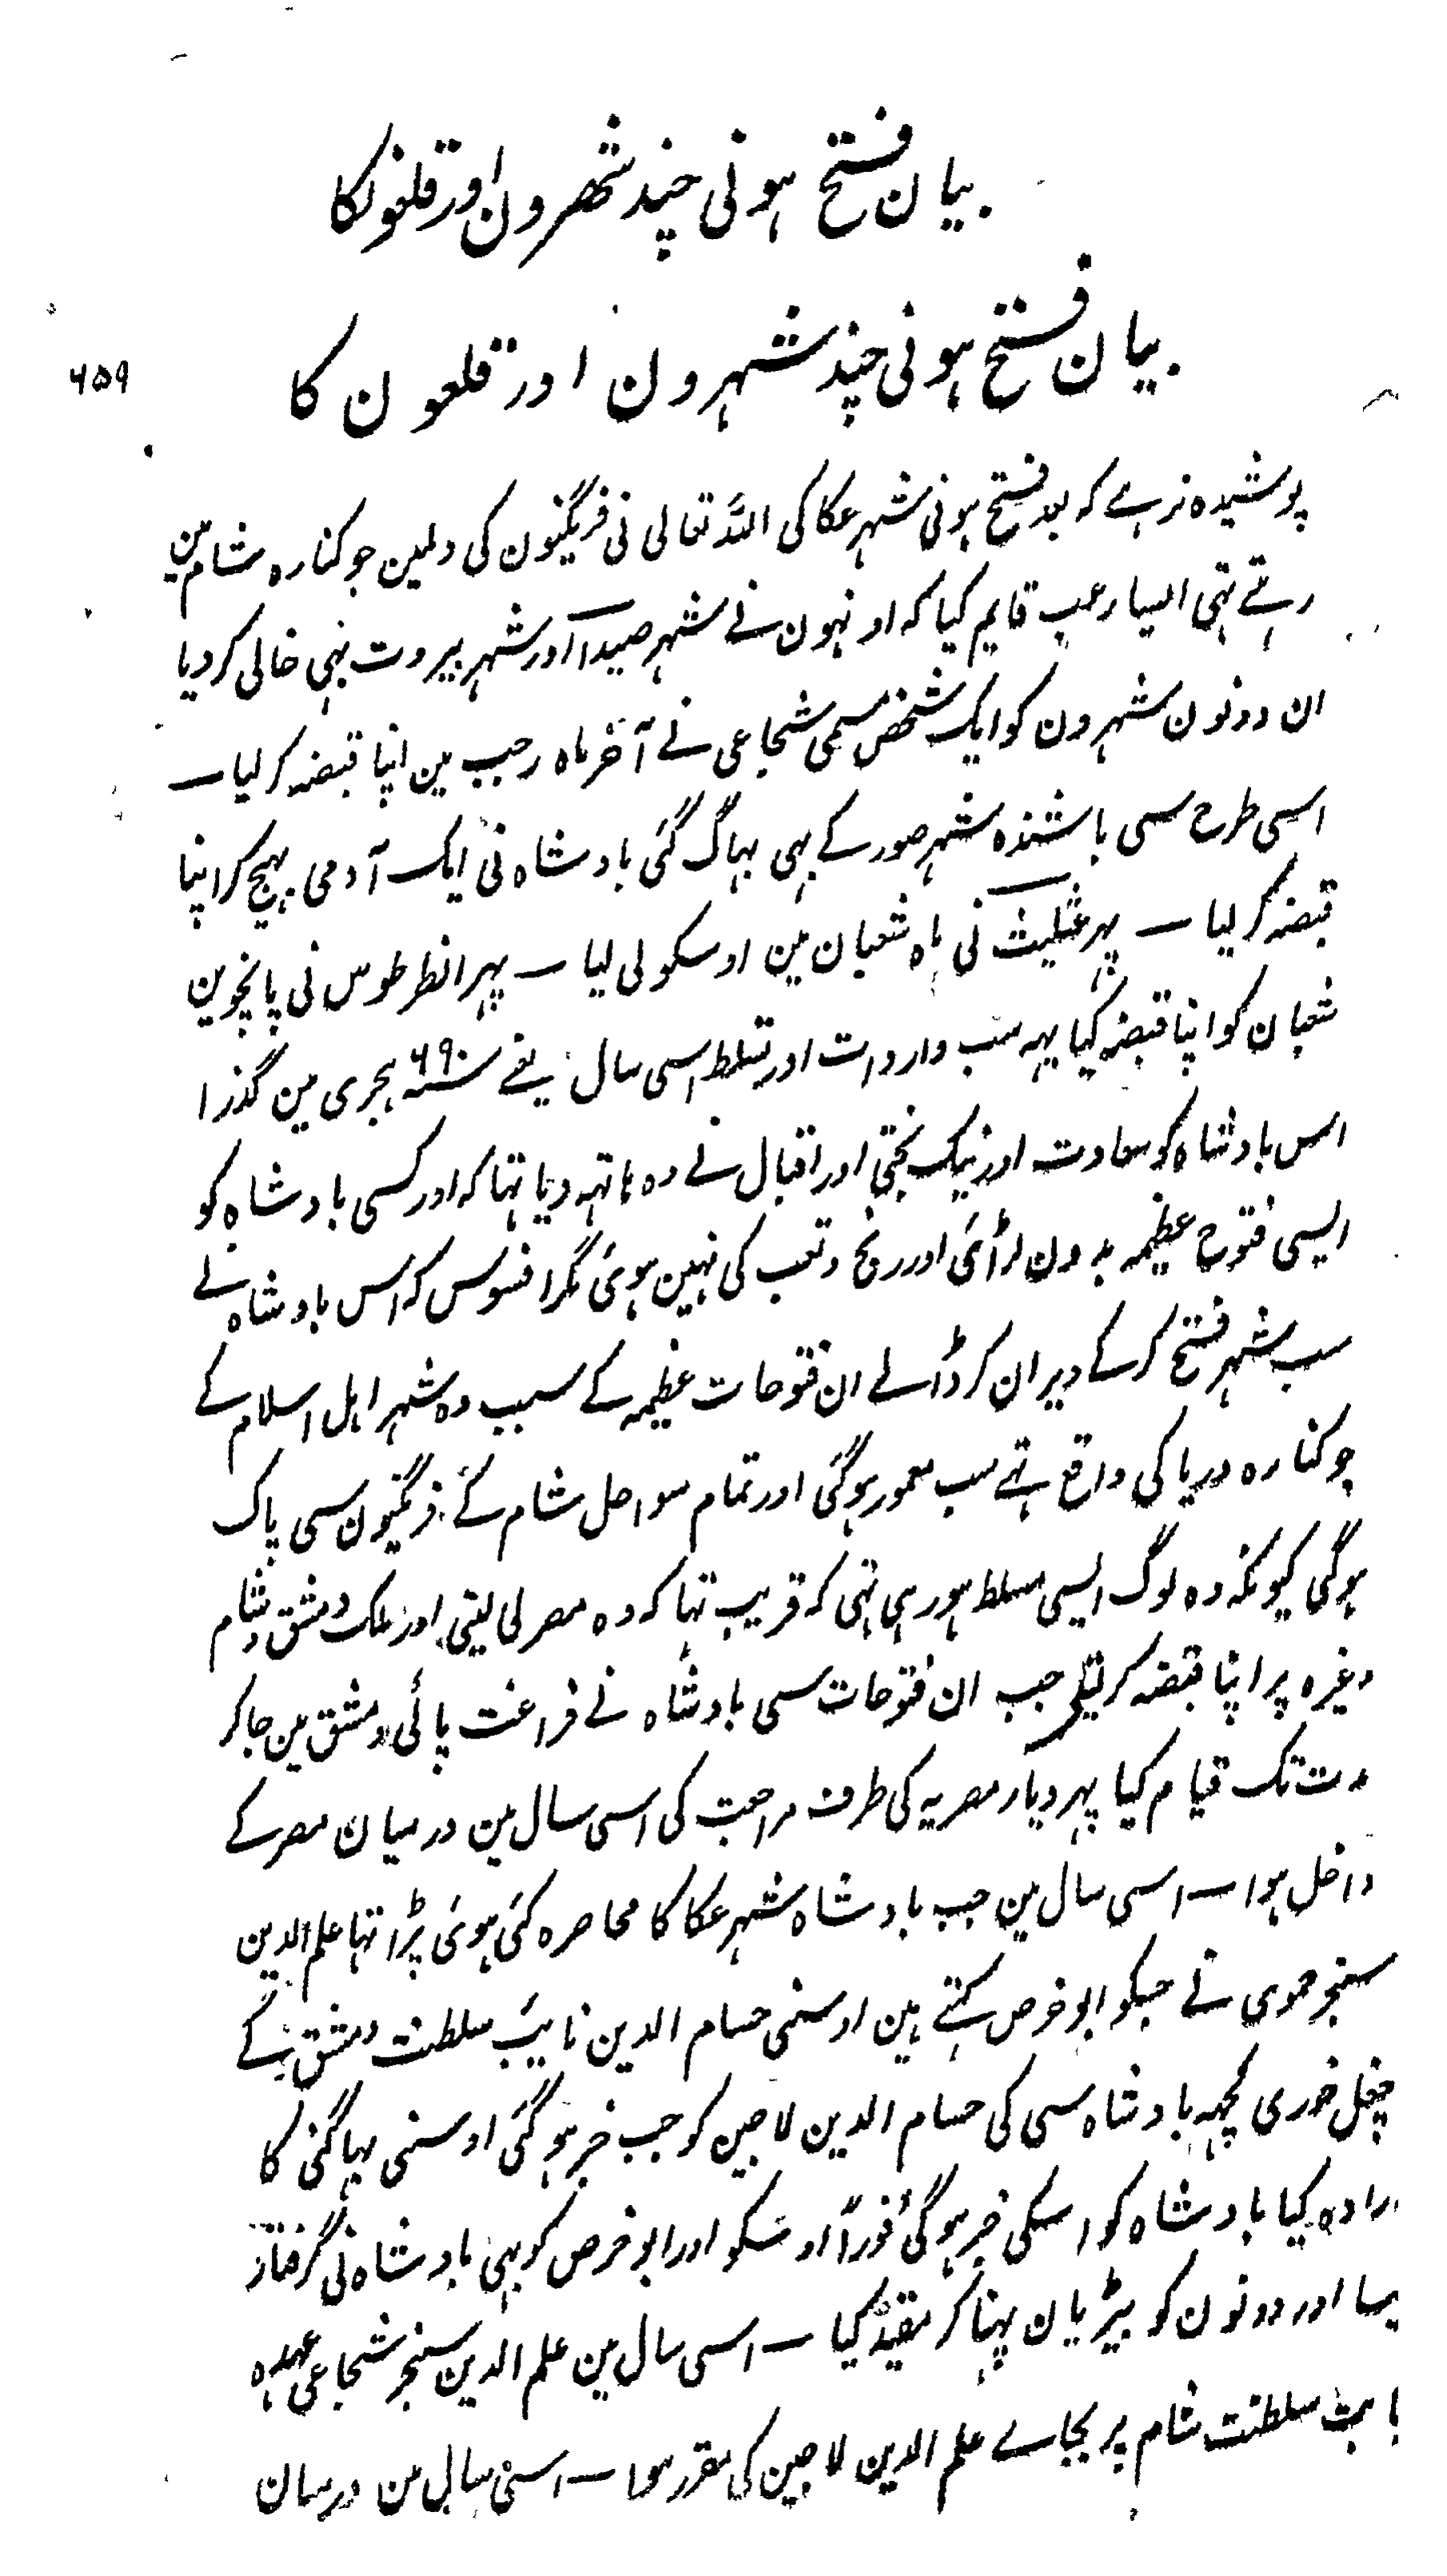 بیان فتح ہونی چند شہرون اور قلعونکا
بیان فتح ہونی چند شہرون اور قلعون کا
۴۵۹
پوشیدہ نرہے کہ بعد فتح ہونی شہر عکا کی اللہ تعالی نی فرنگیون کی دلمین جو کنارہ شام مین
رہتے تہی ایسا رعب قایم کیا کہ اونہون نے شہر صیدا اور شہر بیروت بہی خالی کر دیا
ان دونون شہرون کو ایک شخص مسمی شجاعی نے آخر ماہ رجب مین اپنا قبضہ کر لیا ــ
اسی طرح سی باشندہ شہر صور کے بہی بہاگ گئی بادشاہ نی ایک آدمی بہیج کر اپنا
قبضہ کر لیا ــ پہر عثلیث نی ماہ شعبان مین اوسکو لی لیا ــ پہر انطرطوس نی پانچوین
شعبان کو اپنا قبضہ کیا یہہ سب واردات اور تسلط اسی سال یعنے سنہ ۶۹۰ ہجری مین گذرا
اس بادشاہ کو سعادت اور نیک بختی اور اقبال نے وہ ہاتہہ دیا تہا کہ اور کسی بادشاہ کو
ایسی فتوح عظیمہ بدون لڑائی اور رنج و تعب کی نہین ہوئی مگر افسوس کہ اس بادشاہ نے
سب شہر فتح کر کے ویران کر ڈالے ان فتوحات عظیمہ کے سبب وہ شہر اہل اسلام کے
جو کنارہ دریا کی واقع تہے سب معمور ہوگئی اور تمام سواحل شام کے فرنگیون سی پاک
ہوگی کیونکہ وہ لوگ ایسی مسلط ہو رہی تہی کہ قریب تہا کہ وہ مصر لی لیتی اور ملک دمشق و شام
وغیرہ پر اپنا قبضہ کر لیتی جب ان فتوحات سی بادشاہ نے فراغت پائی دمشق مین جا کر
مدت تک قیام کیا پہر دیار مصریہ کی طرف مراجعت کی اسی سال مین درمیان مصر کے
داخل ہوا ــ اسی سال مین جب بادشاہ شہر عکا کا محاصرہ کئی ہوئی پڑا تہا علم الدین
سنجر حموی نے جسکو ابو خرص کہتے ہین اوسنی حسام الدین نایب سلطنت دمشق کے
چغل خوری کچہہ بادشاہ سی کی حسام الدین لاجین کو جب خبر ہو گئی اوسنی بہاگنی کا
ارادہ کیا بادشاہ کو اسکی خبر ہوگئی فوراً اوسکو اور ابو خرص کو بہی بادشاہ نی گرفتار
کیا اور دونون کو بیڑیان پہنا کر مقید کیا ــ اسی سال مین علم الدین سنجر شجاعی عہدہ
نیابت سلطنت شام پر بجاے علم الدین لاجین کی مقرر ہوا ــ اسی سال مین درمیان